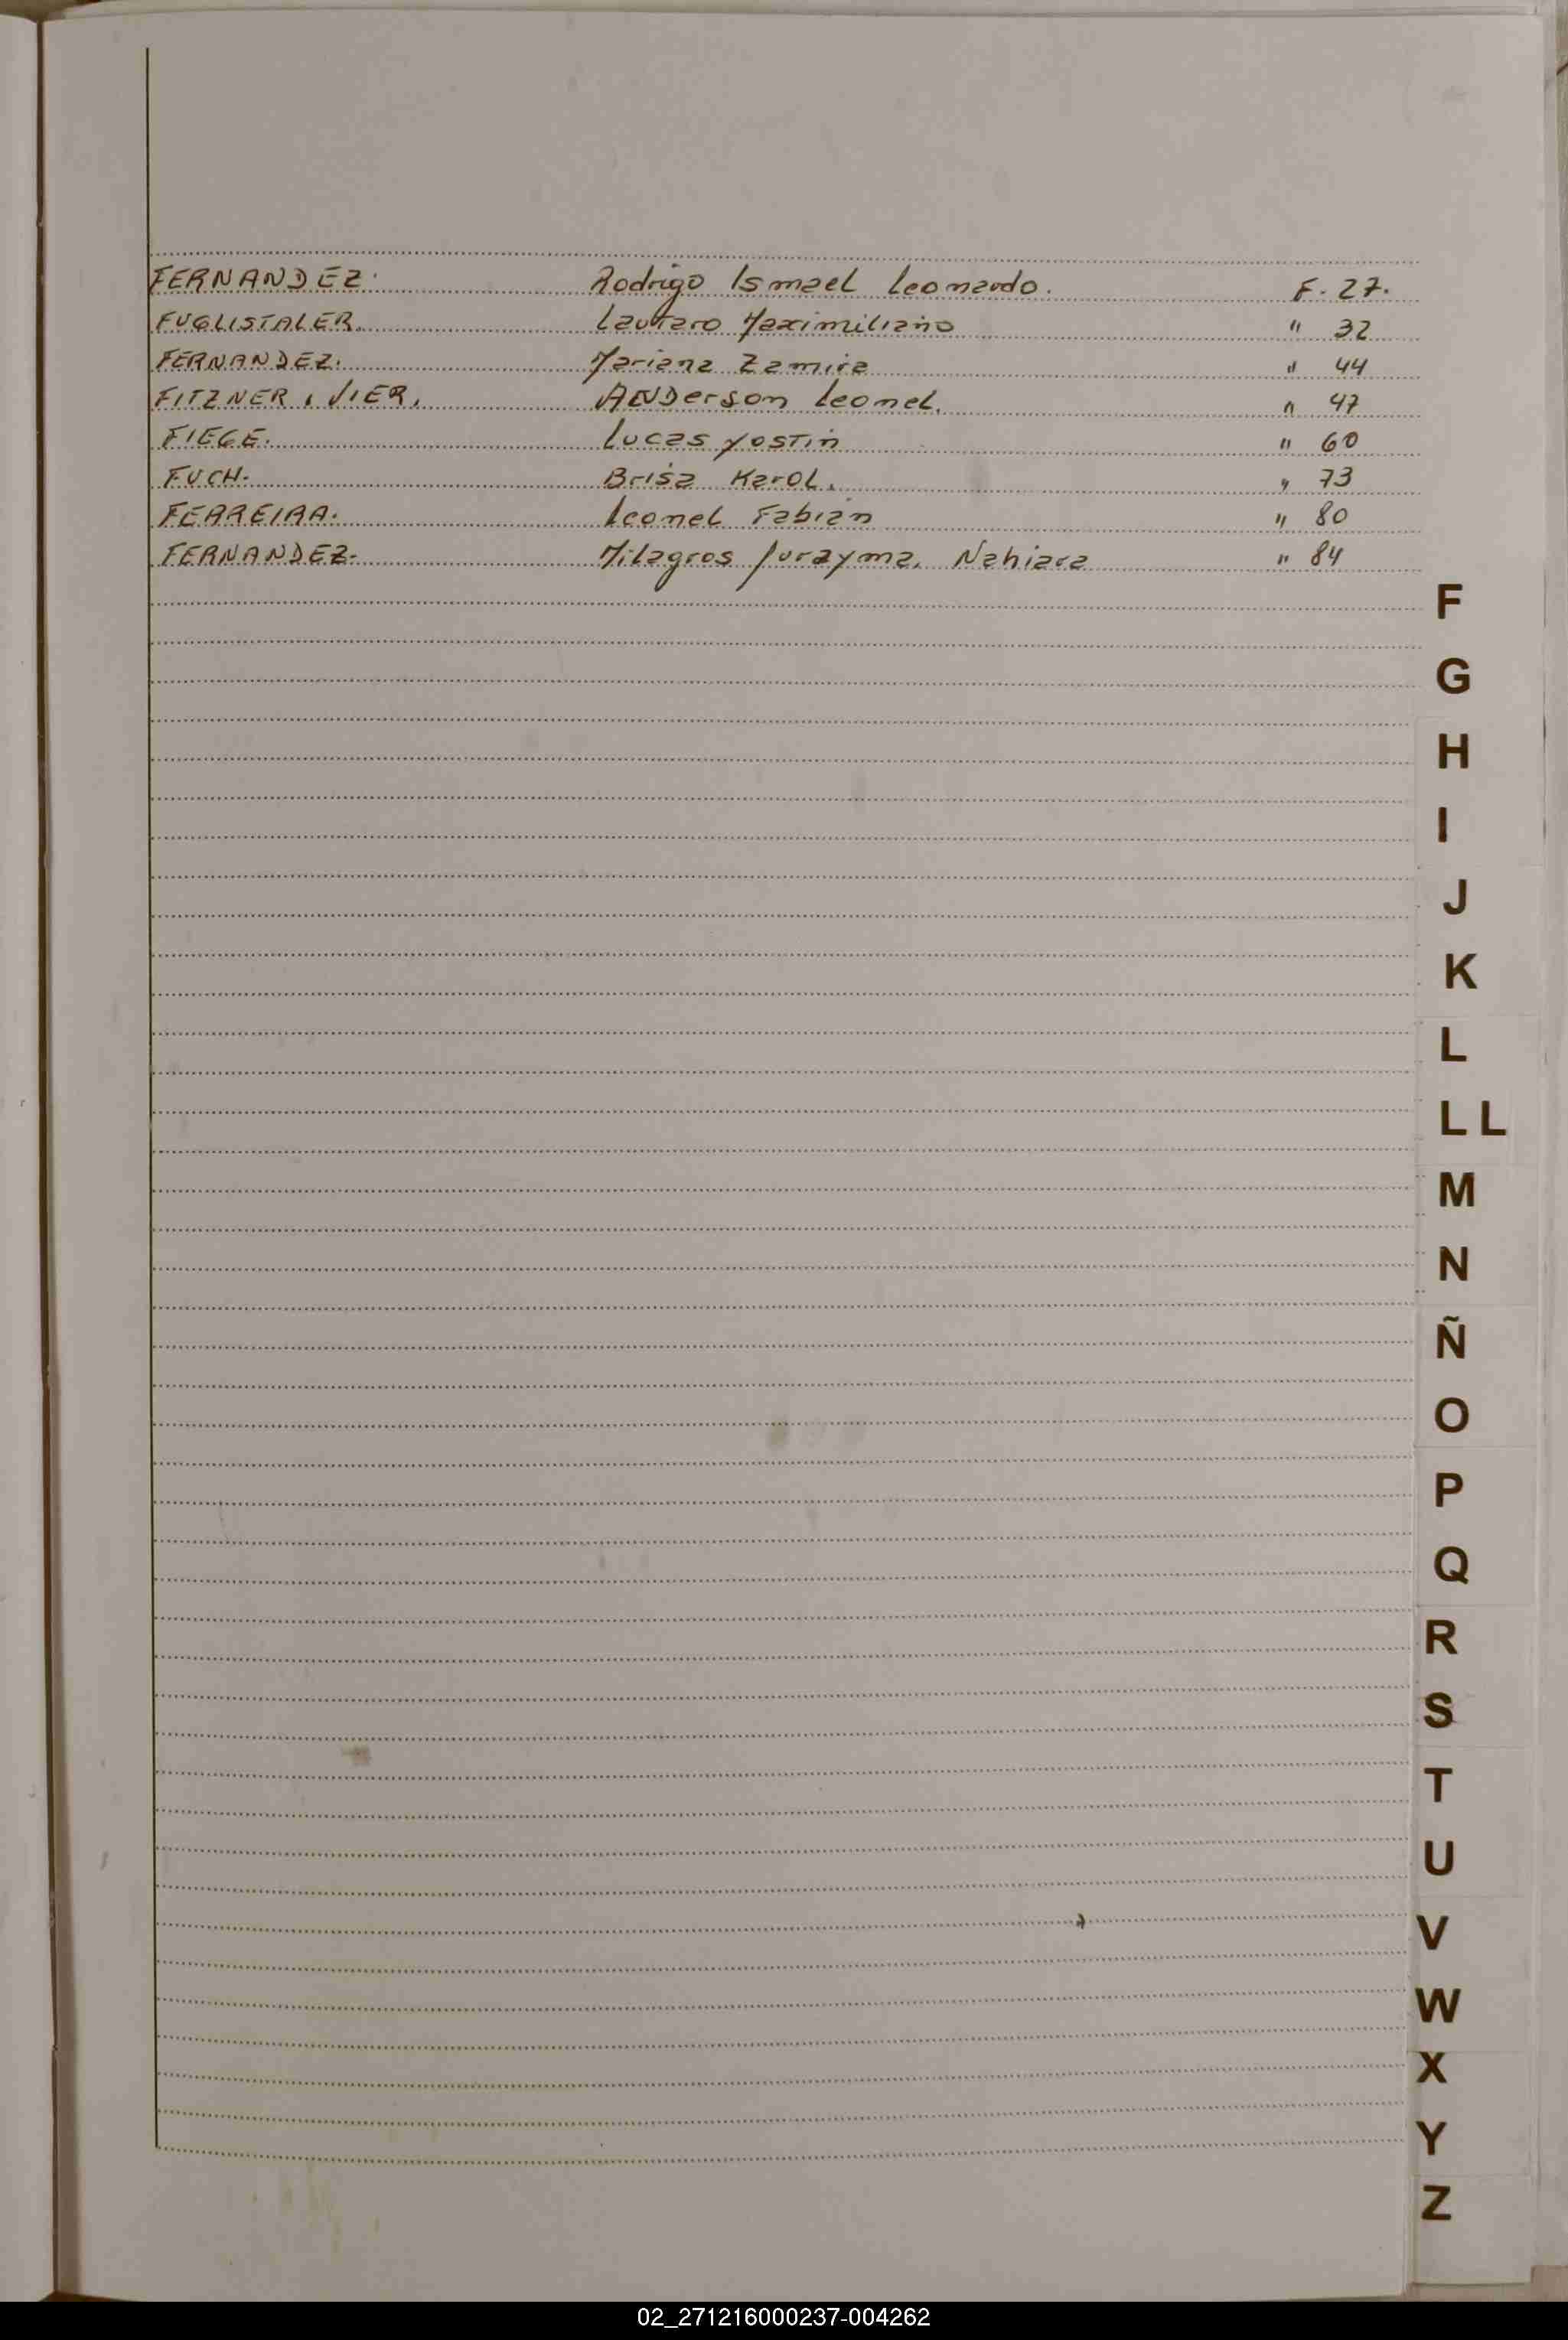 FERNANDEZ. Rodrigo Ismael Leonardo. F. 27.
FUGLISTALER. Lautaro Maximiliano " 32
FERNANDEZ. Mariana Zamira " 44
FITZNER, VIER. ANDerson Leonel. " 47
FIEGE. Lucas Yostin " 60
FUCH. Brisa Karol. " 73
FERREIRA. Leonel Fabián " 80
FERNANDEZ. Milagros Nahiara " 84
F
G
H
I
J
K
L
LL
M
N
Ñ
O
P
Q
R
S
T
U
V
W
X
Y
Z
02_271216000237-004262